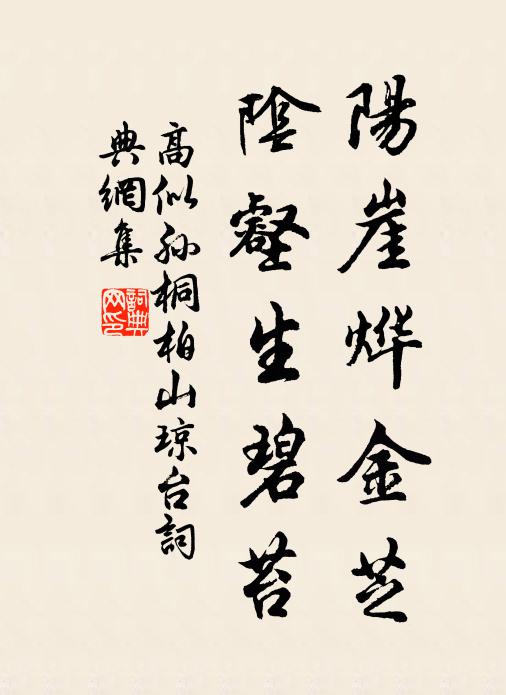 陽崖烨金芝
陰壑生碧苔
高似孙桐柏山琼台詞
典網集
詞典網印